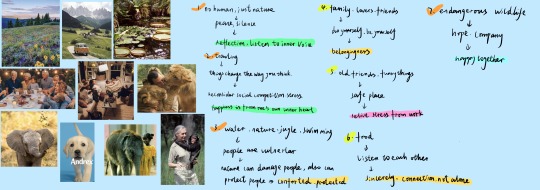 1. no human, just nature
peace, silence
reflection, listen to inner voice
2. traveling
things change the way you think
reconsider social competition stress
happiness is from one's own inner heart
3. water, nature, jungle, swimming
people are vulnerable
nature can damage people, also can
protect people → comforted, protected
4. family, lovers, friends
belongingness
5. old friends, funny things
safe place
relieve stress from work
6. food
listen to each other
sincerely, connection, not alone
7. endangerous wildlife
hope, company
happy together
Andrex